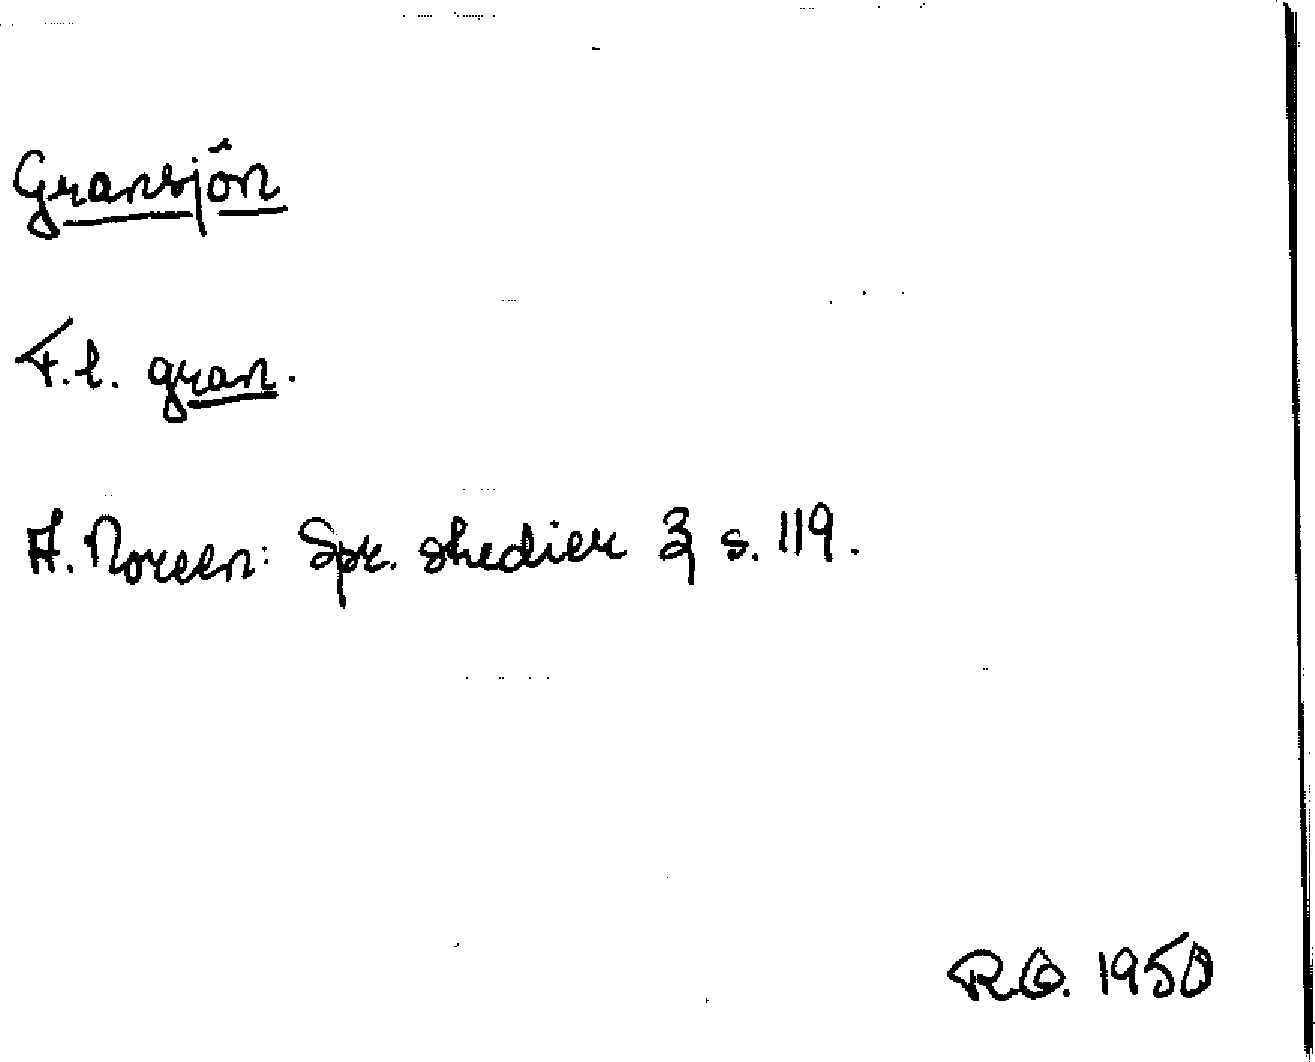 Gransjön
F.l. gran.
A. Noreen: Spr. studier 3, s. 119.
1950